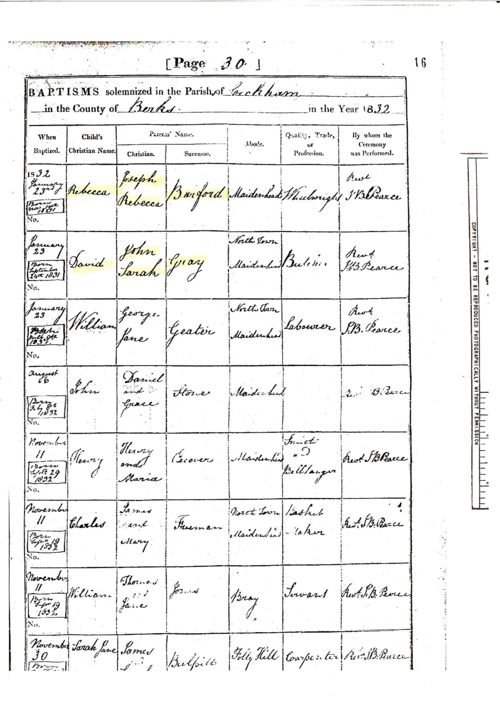 [Page 30] 16
BAPTISMS solemnized in the Parish of Cuckham
in the County of Berks in the Year 1832
When Baptized. Child's Christian Name. Parents' Name. Christian. Surname. Abode. Quality, Trade, or Profession. By whom the Ceremony was Performed.
1832 January 23rd Born 1831 No. Rebecca Joseph Rebecca Burford Maidenhead Wheelwright Revd J B Pearce
January 23 Born 1831 No. David John Sarah Gray North Town Maidenhead Revd J B Pearce
January 23 No. William George Jane Geater North Town Maidenhead Labourer Revd J.B. Pearce
August Born 1832 No. John Daniel and Grace Stone Maidenhead B Pearce
November 11 Born Sept 29 1832 No. Henry Henry and Maria Maidenhead and Bellhanger Revd J B Pearce
November 11 Born 1832 No. Charles James and Mary Freeman North Town Maidenhead Basket Maker Revd J.B Pearce
November 11 Born 19 1832 No. William Thomas and Jane Jones Bray Servant Revd J.B Pearce
November 30 Born Sarah Jane James Bulpitt Folly Hill Carpenter Revd J B Pearce
COPYRIGHT - NOT TO BE REPRODUCED PHOTOGRAPHICALLY WITHOUT PERMISSION